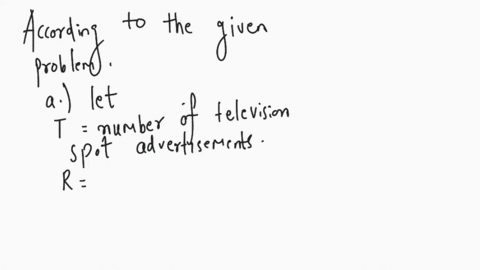 According to the given
problem.
a.) let
T = number of television
spot advertisements.
R =